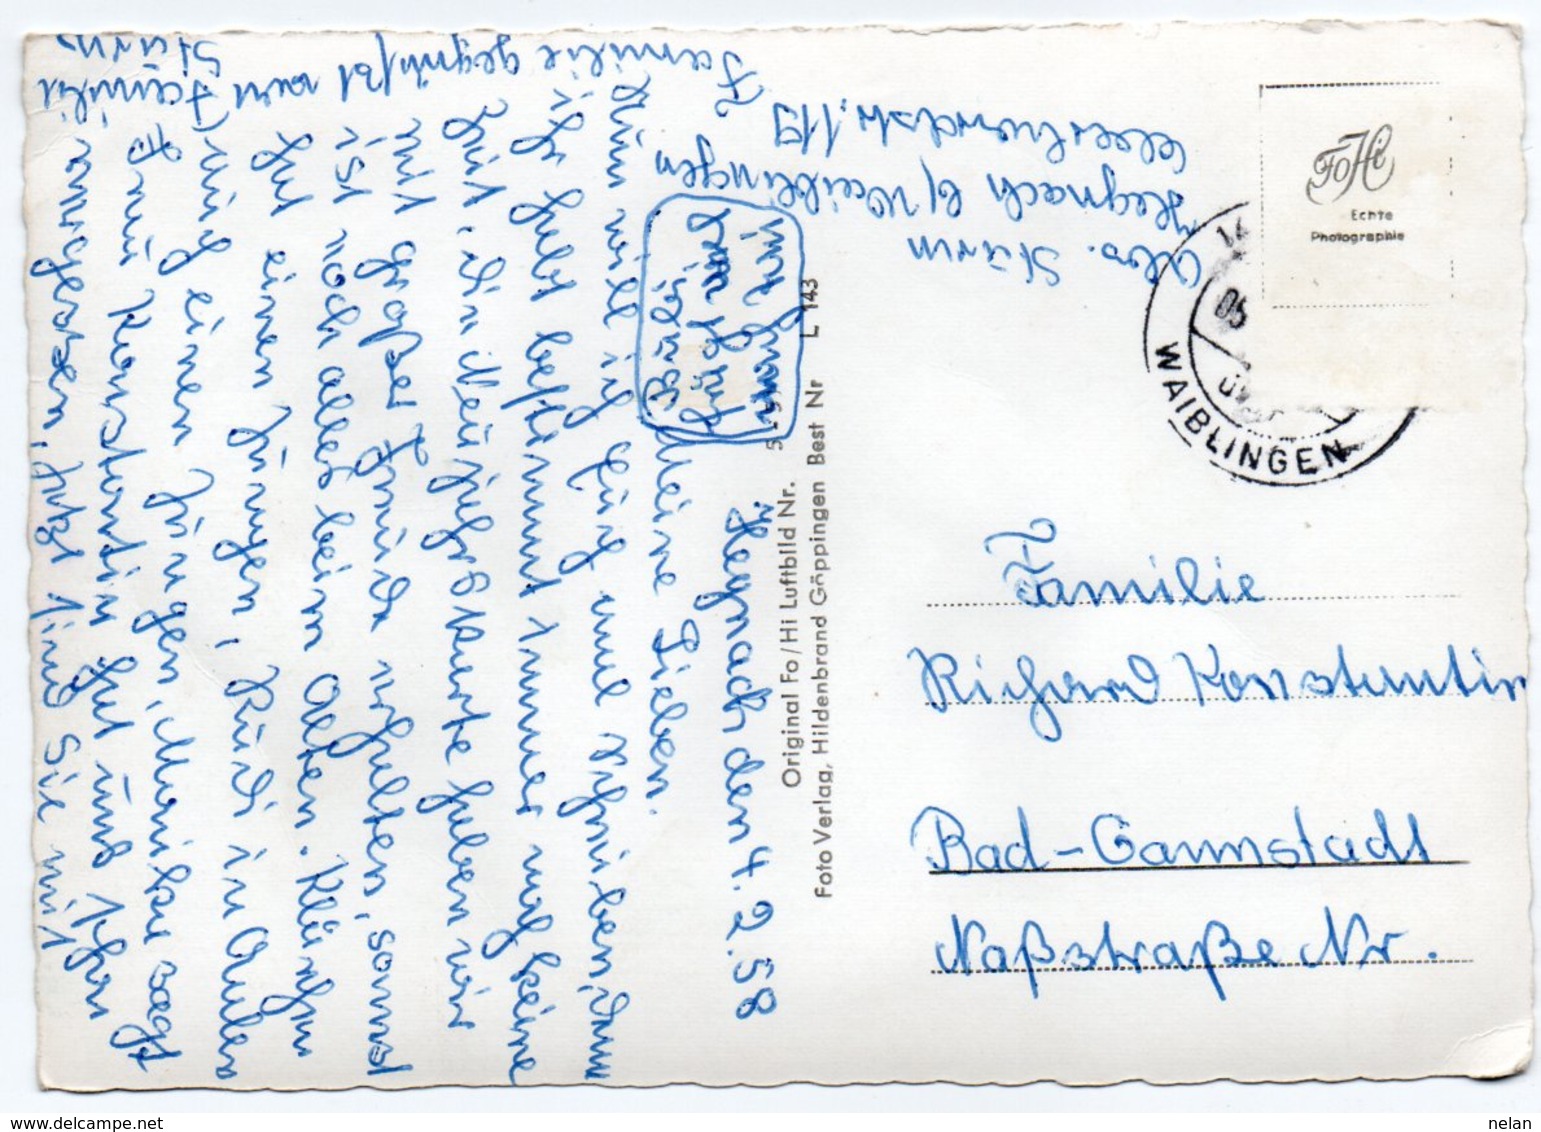 Hegnach den 4. 2. 58
Meine Lieben.
Nun will ich Euch mal schreiben, denn
ihr habt bestimmt immer noch keine
Zeit, die Neujahrskarte haben wir
mit großer Freude erhalten, sonst
ist noch alles beim Alten. Klärchen
hat einen Jungen, Rudi in Aalen
auch einen Jungen, Marika sagt
Frau Konstantin hat uns schon
vergessen, jetzt sind Sie mit
Familie gegrüßt von Familie
Sturm
Familie
Alb. Sturm
Hegnach b/Waiblingen
115
Original Fo/Hi Luftbild Nr.
Foto Verlag, Hildenbrand Göppingen Best Nr L 143
FoHi
Echte
Photographie
WAIBLINGEN
Familie
Richard Konstantin
Bad-Cannstadt
Naßstraße Nr.
nelan